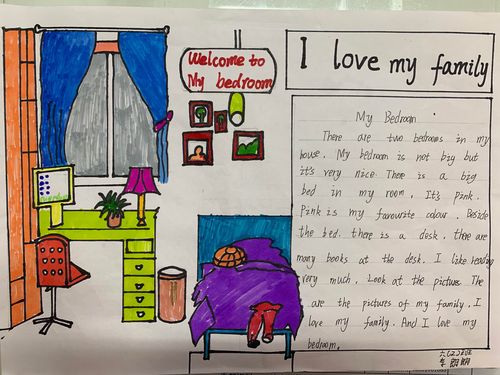 Welcome to
My bedroom
I love my family
My Bedroom
There are two bedrooms in my
house. My bedroom is not big but
it's very nice. There is a big
bed in my room. It's pink.
Pink is my favourite colour. Beside
the bed. there is a desk. there are
many books at the desk. I like reading
very much. Look at the picture. The
are the pictures of my family. I
love my family. And I love my
bedroom.
六(2)班